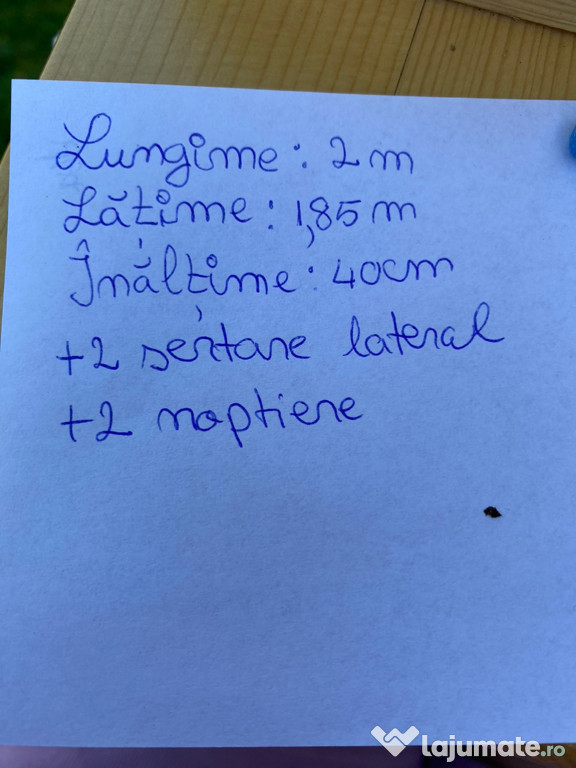 Lungime: 2m
Lățime: 1,85m
Înălțime: 40cm
+2 sertare lateral
+2 noptiere
lajumate.ro